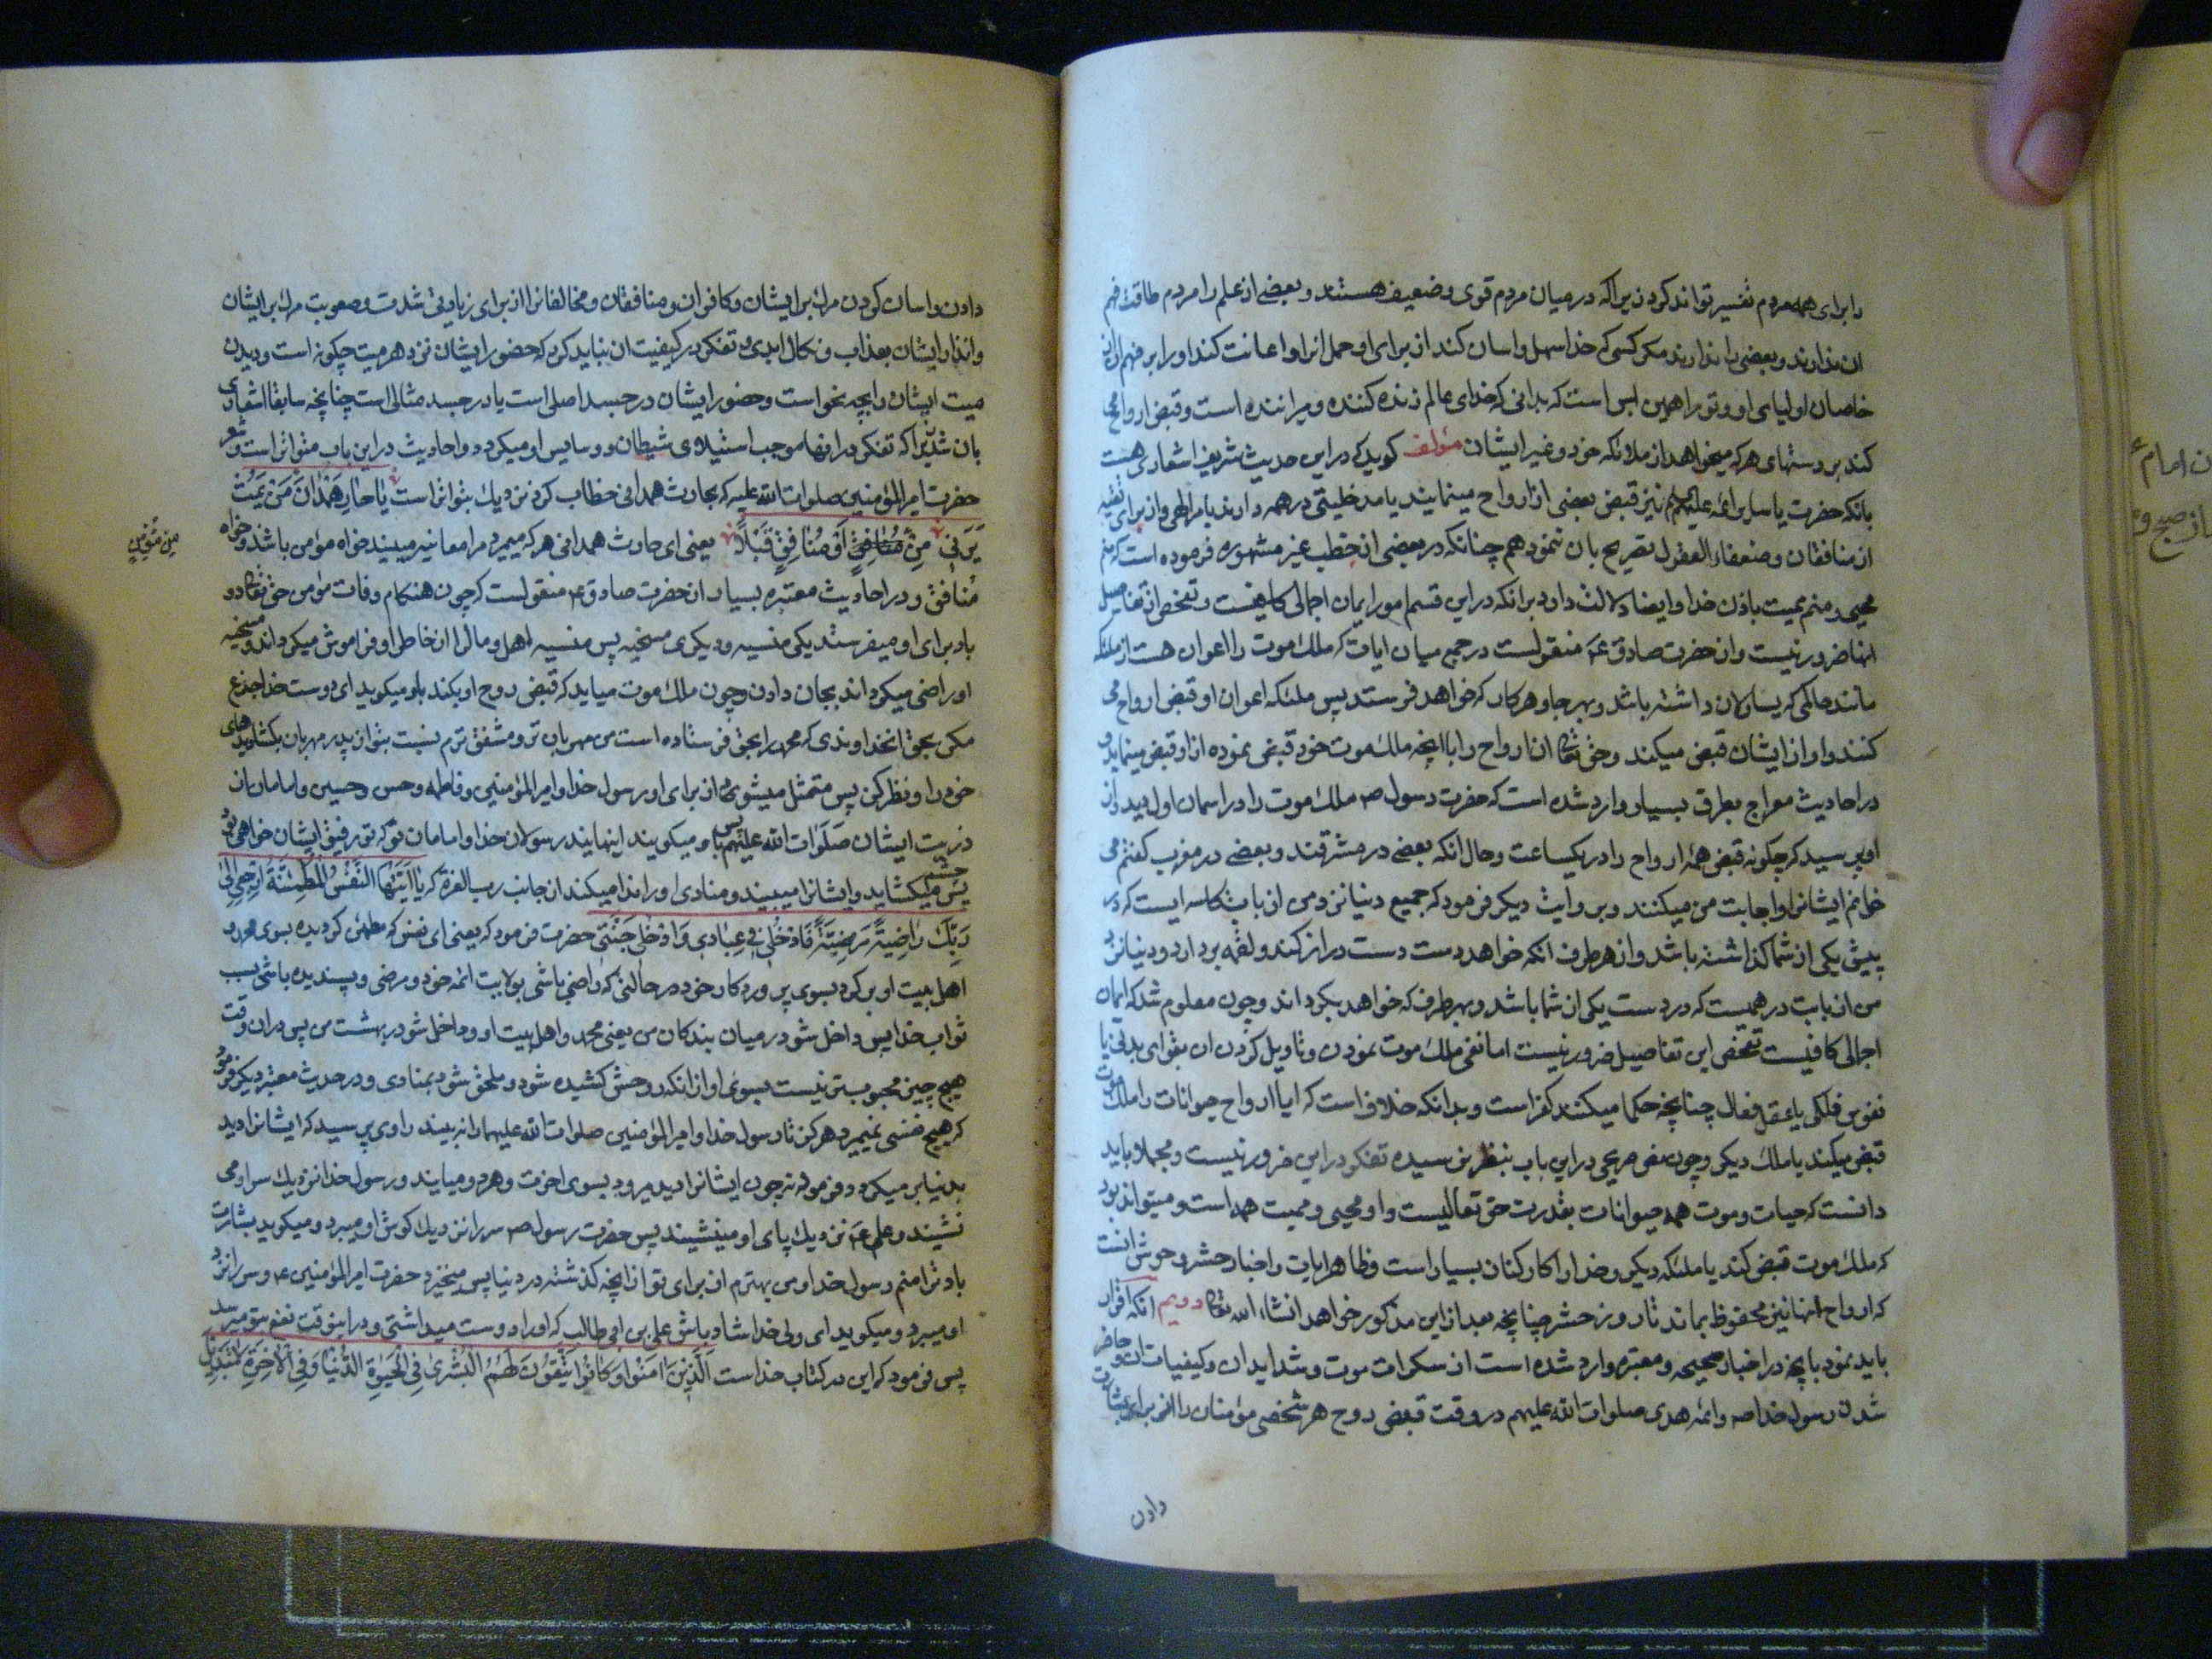 را برای همه مردم تفسیر تواند کرد زیرا که در میان مردم قوی و ضعیف هستند و بعضی از علم را مردم طاقت فهم
ان ندارند و بعضی را ندارند مکر کسی که خدا سهل و اسان کند از برای او حمل انرا و اعانت کند او را بر فهم ان از
خاصان اولیای او و تو را همین بس است که بدانی که خدای عالم زنده کننده و میراننده است و قبض ارواح می
کند بر دستهای هر که میخواهد از ملائکه خود و غیر ایشان مؤلف کوید که در این حدیث شریف اشعاری هست
بانکه حضرت یا سایر ائمه علیهم نیز قبض بعضی از ارواح مینمایند یا مدخلیتی در همه دارند بامر الهی و از برای تقیه
از منافقان و ضعفاء العقول تصریح بان ننمود هم چنانکه در بعضی از خطب غیر مشهوره فرموده است که منم
محیی و منم ممیت باذن خدا و ایضا دلالت دارد برانکه در این قسم امور ایمان اجمالی کافیست و تفحص از تفاصیل
انها ضرور نیست و از حضرت صادق ع منقولست در جمع میان ایات که ملک موت را اعوان هست از ملئکه
مانند حاکمی که یساولان داشته باشد و بهر جا و هر کار که خواهد فرستد پس ملئکه اعوان او قبض ارواح می
کنند و او از ایشان قبض میکند و حق تعالی ان ارواح را با انچه ملک موت خود قبض نموده از او قبض مینماید و
در احادیث معراج بطرق بسیار وارد شده است که حضرت رسول ص ملک موت را در اسمان اول دید و از
او پرسید که چکونه قبض همه ارواح را در یکساعت و حال انکه بعضی در مشرقند و بعضی در مغرب کفتم می
خوانم ایشانرا و اجابت من میکنند و بروایت دیکر فرمود که جمیع دنیا نزد من از باب کاسه ایست که در
پیش یکی از شما کذاشته باشد و از هر طرف انکه خواهد دست دراز کند و لقمه بردارد و دنیا نزد
من از بابت درهمیست که در دست یکی از شما باشد و بهر طرف که خواهد بکرداند و چون معلوم شد که ایمان
اجمالی کافیست تفحص این تفاصیل ضرور نیست اما نفی ملک موت نمودن و تاویل کردن ان بقوای بدنی یا
نفوس فلکی یا عقل فعال چنانچه حکما میکنند کفر است و بدانکه خلاف است که ایا ارواح حیوانات را ملک موت
قبض میکند یا ملک دیکر و چون نص صریحی در این باب بنظر نرسیده تفکر در این ضرور نیست و مجملا باید
دانست که حیات و موت همه حیوانات بقدرت حق تعالیست و او محیی و ممیت همه است و میتواند بود
که ملک موت قبض کند یا ملئکه دیکر و خدا را کارکنان بسیار است و ظاهر ایات و اخبار حشر وحوش انست
که ارواح انها نیز محفوظ بماند تا روز حشر چنانچه بعد از این مذکور خواهد انشاء الله تعالی دویم انکه اقرار
باید نمود بانچه در اخبار صحیحه و معتبره وارد شده است از سکرات موت و شداید ان و کیفیات ان و حاضر
شدن رسول خدا ص و ائمه هدی صلوات الله علیهم در وقت قبض روح هر شخصی مؤمنان را از برای بشارت
دادن
دادن و اسان کردن مرک بر ایشان و کافران و منافقان و مخالفانرا از برای زیادتی شدت و صعوبت مرک بر ایشان
و انذار ایشان بعذاب و نکال ابدی و تفکر در کیفیت ان نباید کرد که حضور ایشان نزد هر میت چکونه است و دیدن
میت ایشان را بچه نحو است و حضور ایشان در جسد اصلی است یا در جسد مثالی است چنانچه سابقا اشعاری
بان شد زیرا که تفکر در اینها موجب استیلای شیطان و وساوس او میکردد و احادیث در این باب متواتر است و شعر
حضرت امیر المؤمنین صلوات الله علیه که بحارث همدانی خطاب کرد نزدیک بتواتر است یَا حَارِ هَمْدَانَ مَنْ یَمُتْ
یَرَنِی مِنْ مُنَافِقٍ اَوْ مُنَافِقٍ قُبُلًا یعنی ای حارث همدانی هر که میمیرد مرا معاینه میبیند خواه مؤمن باشد و خواه
مِنْ مُؤْمِنٍ
مُنافق و در احادیث معتبره بسیار از حضرت صادق ع منقولست که چون هنکام وفات مؤمن حق تعالی دو
باد برای او میفرستد یکی منسیه و دیکری مسخیه پس منسیه اهل و مال را از خاطر او فراموش میکرداند و مسخیه
او راضی میکرداند بجان دادن و چون ملک موت میاید که قبض روح او بکند باو میکوید ای دوست خدا جزع
مکن بحق انخداوندی که محمد را بحق فرستاده است من مهربان تر و مشفق ترم نسبت بتو از پدر مهربان بکشا دیدهای
خود را و نظر کن پس متمثل میشوند از برای او رسول خدا و امیر المؤمنین و فاطمه و حسن و حسین و امامان از
ذریت ایشان صَلَوَات الله علیهم پس باو میکویند اینهایند رسولان خدا و امامان تو که تو رفیق ایشان خواهی بود
پس چشم میکشاید و ایشانرا میبیند و منادی او را ندا میکند از جانب رب العزة که یَا اَیَّتُهَا النَّفْسُ الْمُطْمَئِنَّةُ ارْجِعِی اِلٰی
رَبِّکِ رَاضِیَةً مَرْضِیَّةً فَادْخُلِی فِی عِبَادِی وَادْخُلِی جَنَّتِی حضرت فرمود که یعنی ای نفس که مطمئن کردیده بسوی محمد و
اهل بیت او برکرد بسوی پروردکار خود در حالتی که راضی باشی بولایت ائمه خود و مرضی و پسندیده باشی بسبب
ثواب خدا پس داخل شو در میان بندکان من یعنی محمد و اهل بیت او و داخل شو در بهشت من پس در ان وقت
هیچ چیز محبوبتر نیست بسوی او از انکه روحش کشیده شود و ملحق شود بمنادی و در حدیث معتبر دیکر فرمود
که هیچ نفسی نمیمیرد هرکز تا رسول خدا و امیر المؤمنین صلوات الله علیهما را نه بیند راوی پرسید که ایشانرا دید
بدنیا بر میکردد فرمود نه چون ایشانرا دید میرود بسوی اخرت و هر دو میایند و رسول خدا نزدیک سر او می
نشیند و علی ع نزدیک پای او مینشیند پس حضرت رسول ص سر را نزدیک کوش او میبرد و میکوید بشارت
باد ترا منم رسول خدا و من بهترم از برای تو از انچه کذشته در دنیا پس میخیزد حضرت امیر المؤمنین ع و سر را نزد
او میبرد و میکوید ای ولی خدا شاد باش علی بن ابی طالب که او را دوست میداشتی و در اینوقت نفعم بتو میرسد
پس فرمود که این در کتاب خداست اَلَّذِینَ اٰمَنُوا وَکَانُوا یَتَّقُونَ لَهُمُ الْبُشْرٰی فِی الْحَیٰوةِ الدُّنْیَا وَفِی الْاٰخِرَةِ لَاتَبْدِیلَ